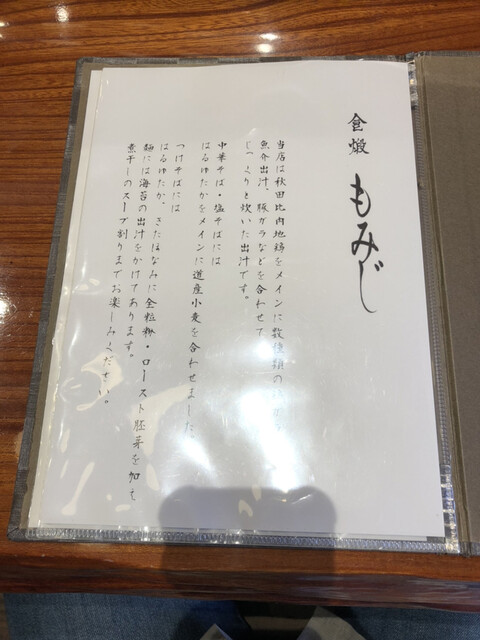 食煅 もみじ
当店は秋田比内地鶏をメインに数種類の
魚介出汁、豚ガラなどを合わせて
じっくりと炊いた出汁です。
中華そば・塩そばには
はるゆたかをメインに道産小麦を合わせました。
つけそばには
はるゆたか、きたほなみに全粒粉・ロースト胚芽を加え
麺には海苔の出汁をかけてあります。
煮干しのスープ割りまでお楽しみください。